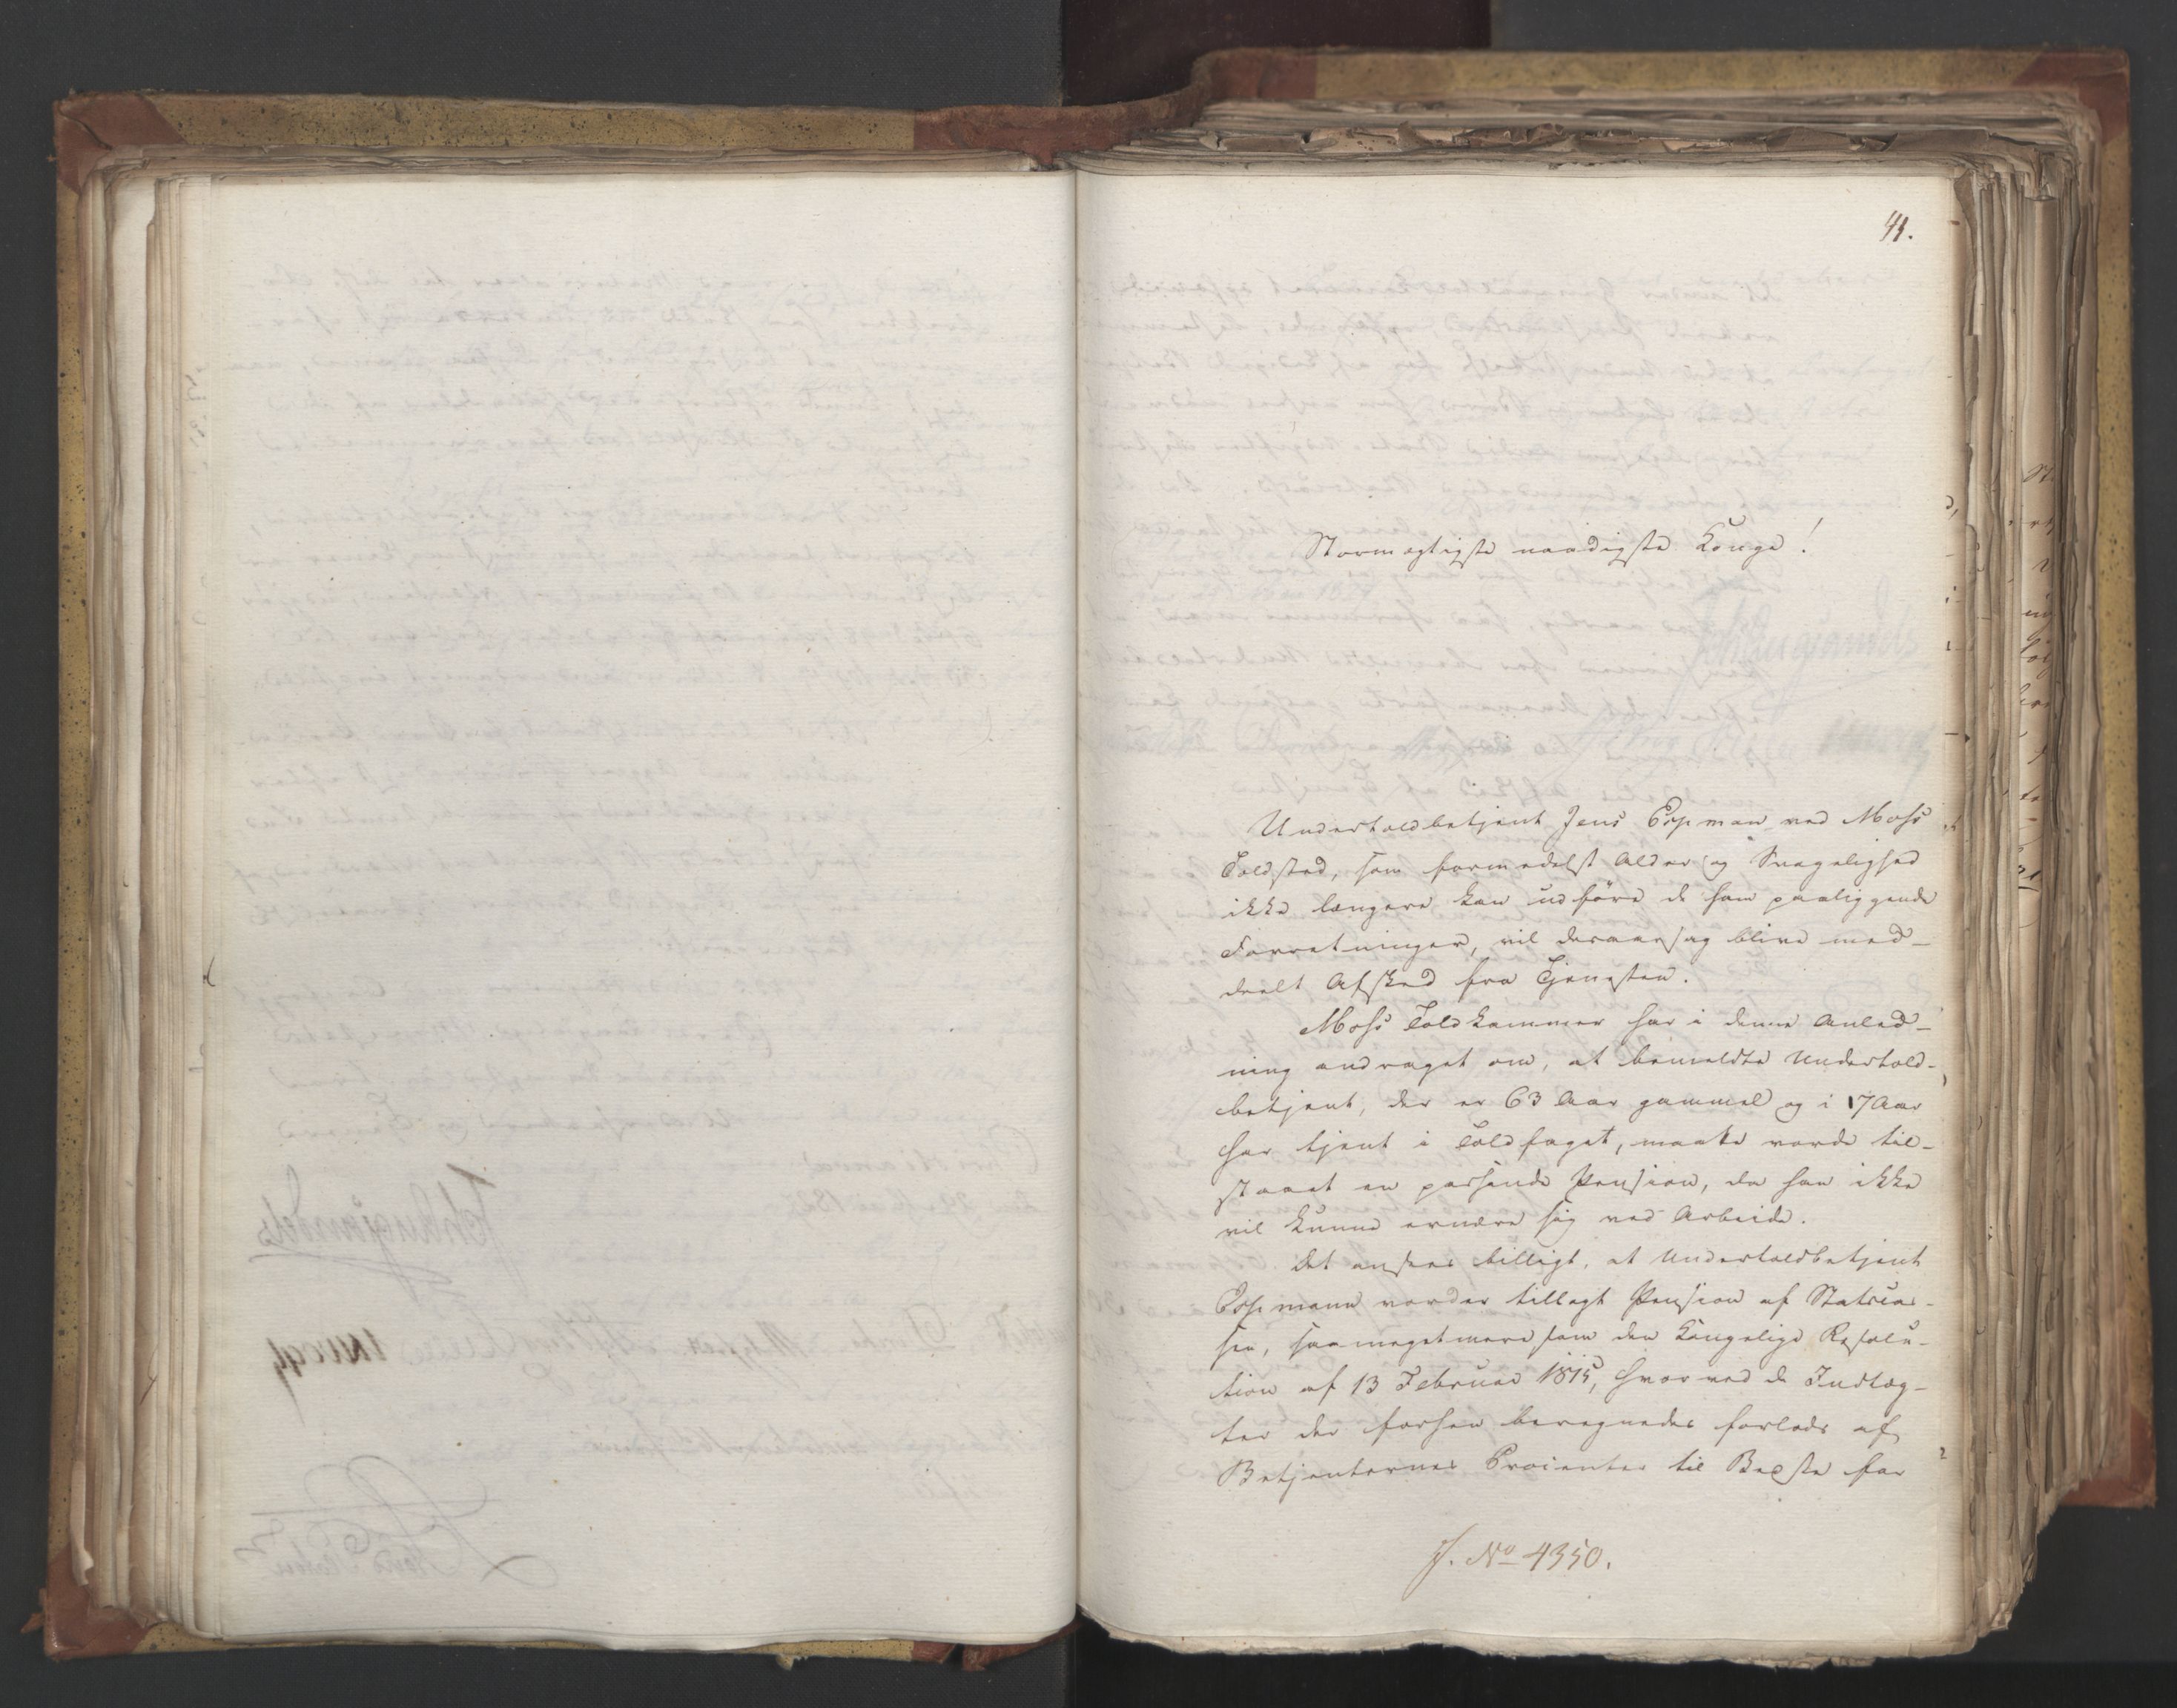 41.
Stormægtigste naadigste Konge!
Undertoldbetjent Jens Espman ved Moss
Toldsted, som formedelst Alder og Svagelighed
ikke længere kan udføre de ham paaliggende
Forretninger, vil deraarsag blive med-
deelt Afsked fra Tjenesten.
Moss Toldkammer har i denne Anled-
ning andraget om, at bemeldte Undertold-
betjent, der er 63 Aar gammel og i 17 Aar
har tjent i Toldfaget, maatte vorde til-
staaet en passende Pension, da han ikke
vil kunne ernære sig ved Arbeide.
Det ansees billigt, at Undertoldbetjent
Espmann vorder tillagt Pension af Statscas-
sen, saameget mere som den Kongelige Resolu-
tion af 13 Februar 1815, hvorved de Indtæg-
ter der forhen beregnedes forlods af
Betjenternes Procenter til Bedste for
J. No 4350.